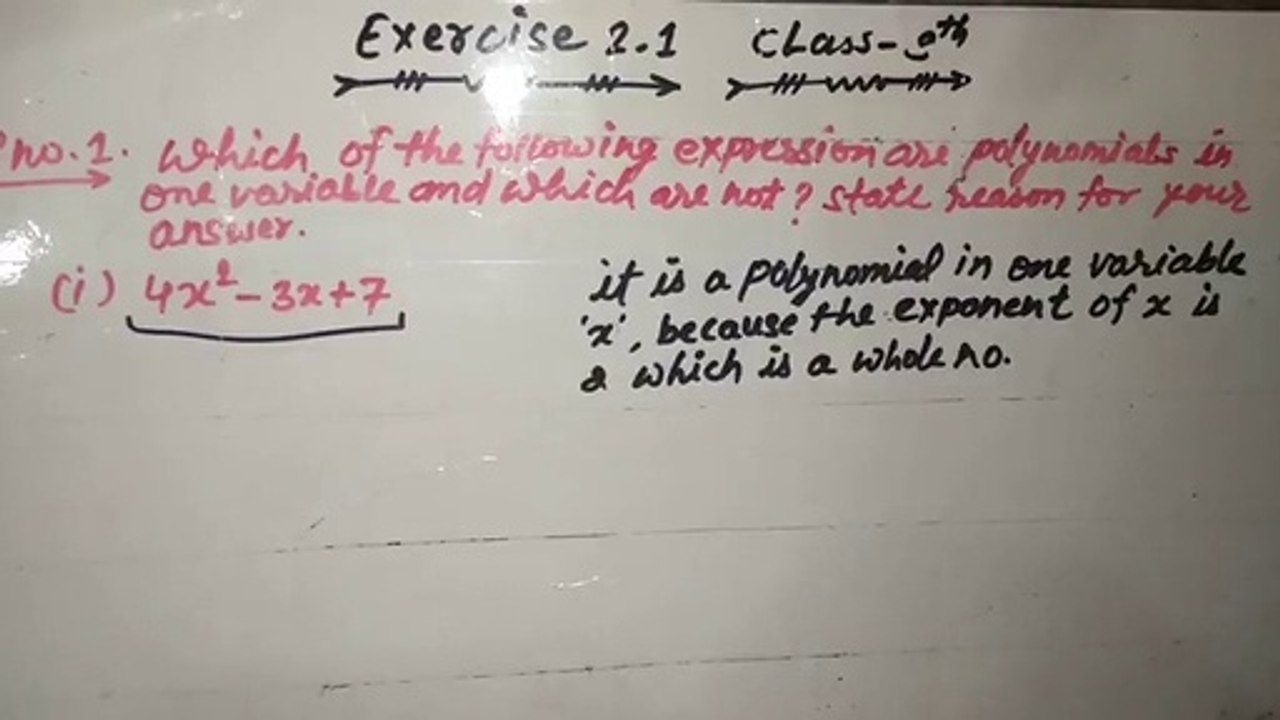 Exercise 2.1 Class-9th
no.1. Which of the following expression are polynomials in
one variable and which are not? State reason for your
answer.
(i) 4x²-3x+7
it is a polynomial in one variable
'x', because the exponent of x is
2 which is a whole no.